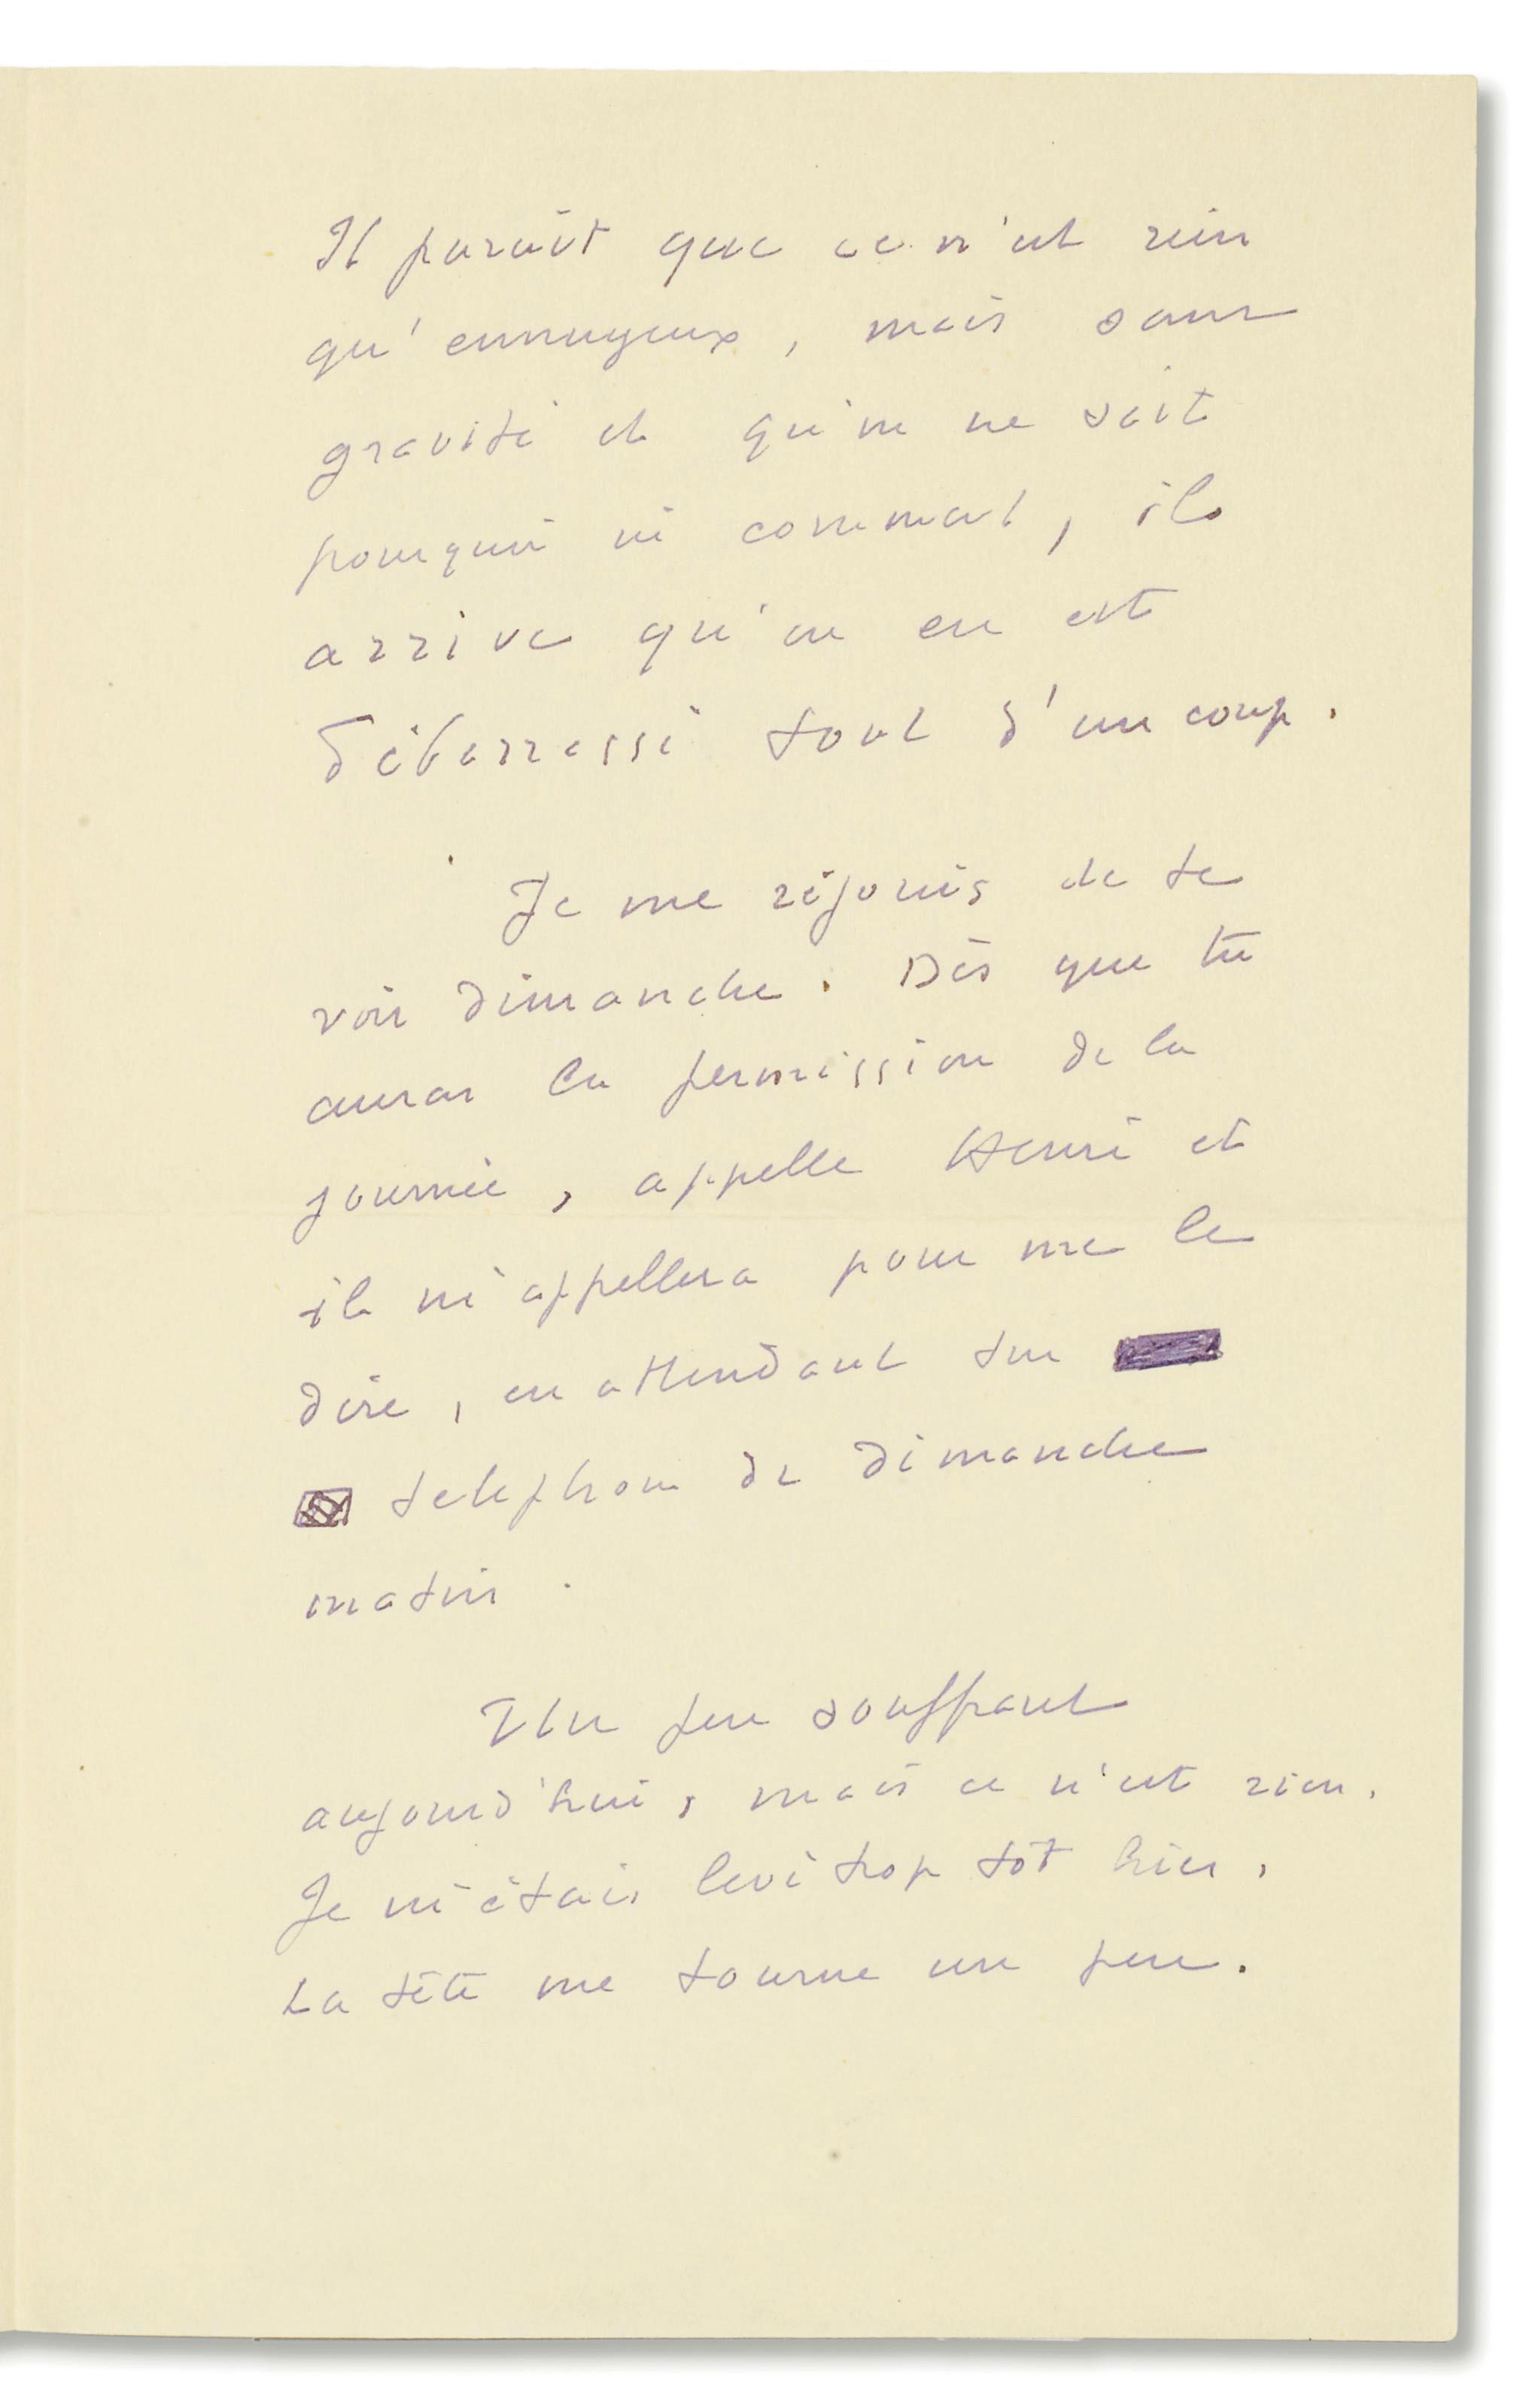 Il paraît que ce n'est rien
qu'ennuyeux, mais sans
gravité et qu'on ne sait
pourquoi ni comment, il
arrive qu'on en est
débarrassé tout d'un coup.
Je me réjouis de te
voir dimanche. Dès que tu
auras la permission de la
journée, appelle Henri et
il m'appellera pour me le
dire, en attendant ton
telephone de dimanche
matin.
Un peu souffrant
aujourd'hui, mais ce n'est rien.
Je m'étais levé trop tôt hier,
La tête me tourne un peu.